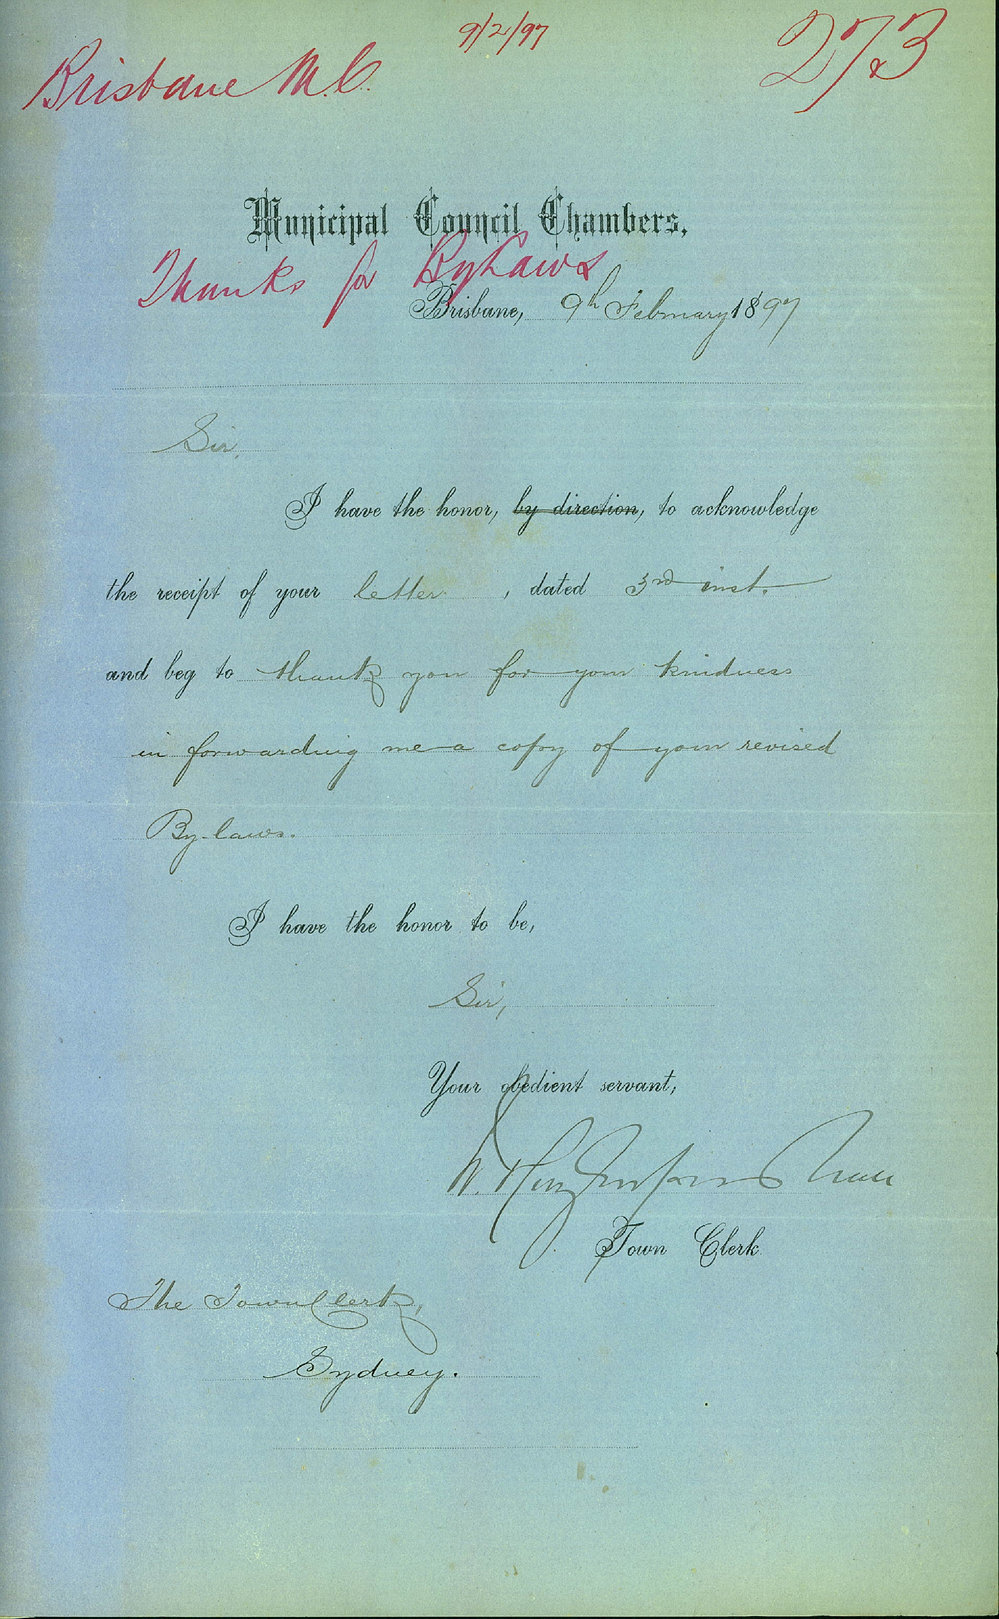 9/2/97
273
Brisbane M.C.
Municipal Council Chambers,
Thanks for By Laws
Brisbane, 9th February 1897
Sir,
I have the honor, by direction, to acknowledge
the receipt of your letter, dated 3rd inst.
and beg to thank you for your kindness
in forwarding me a copy of your revised
By-laws.
I have the honor to be,
Sir,
Your obedient servant,
W.
Town Clerk
The Town Clerk,
Sydney.